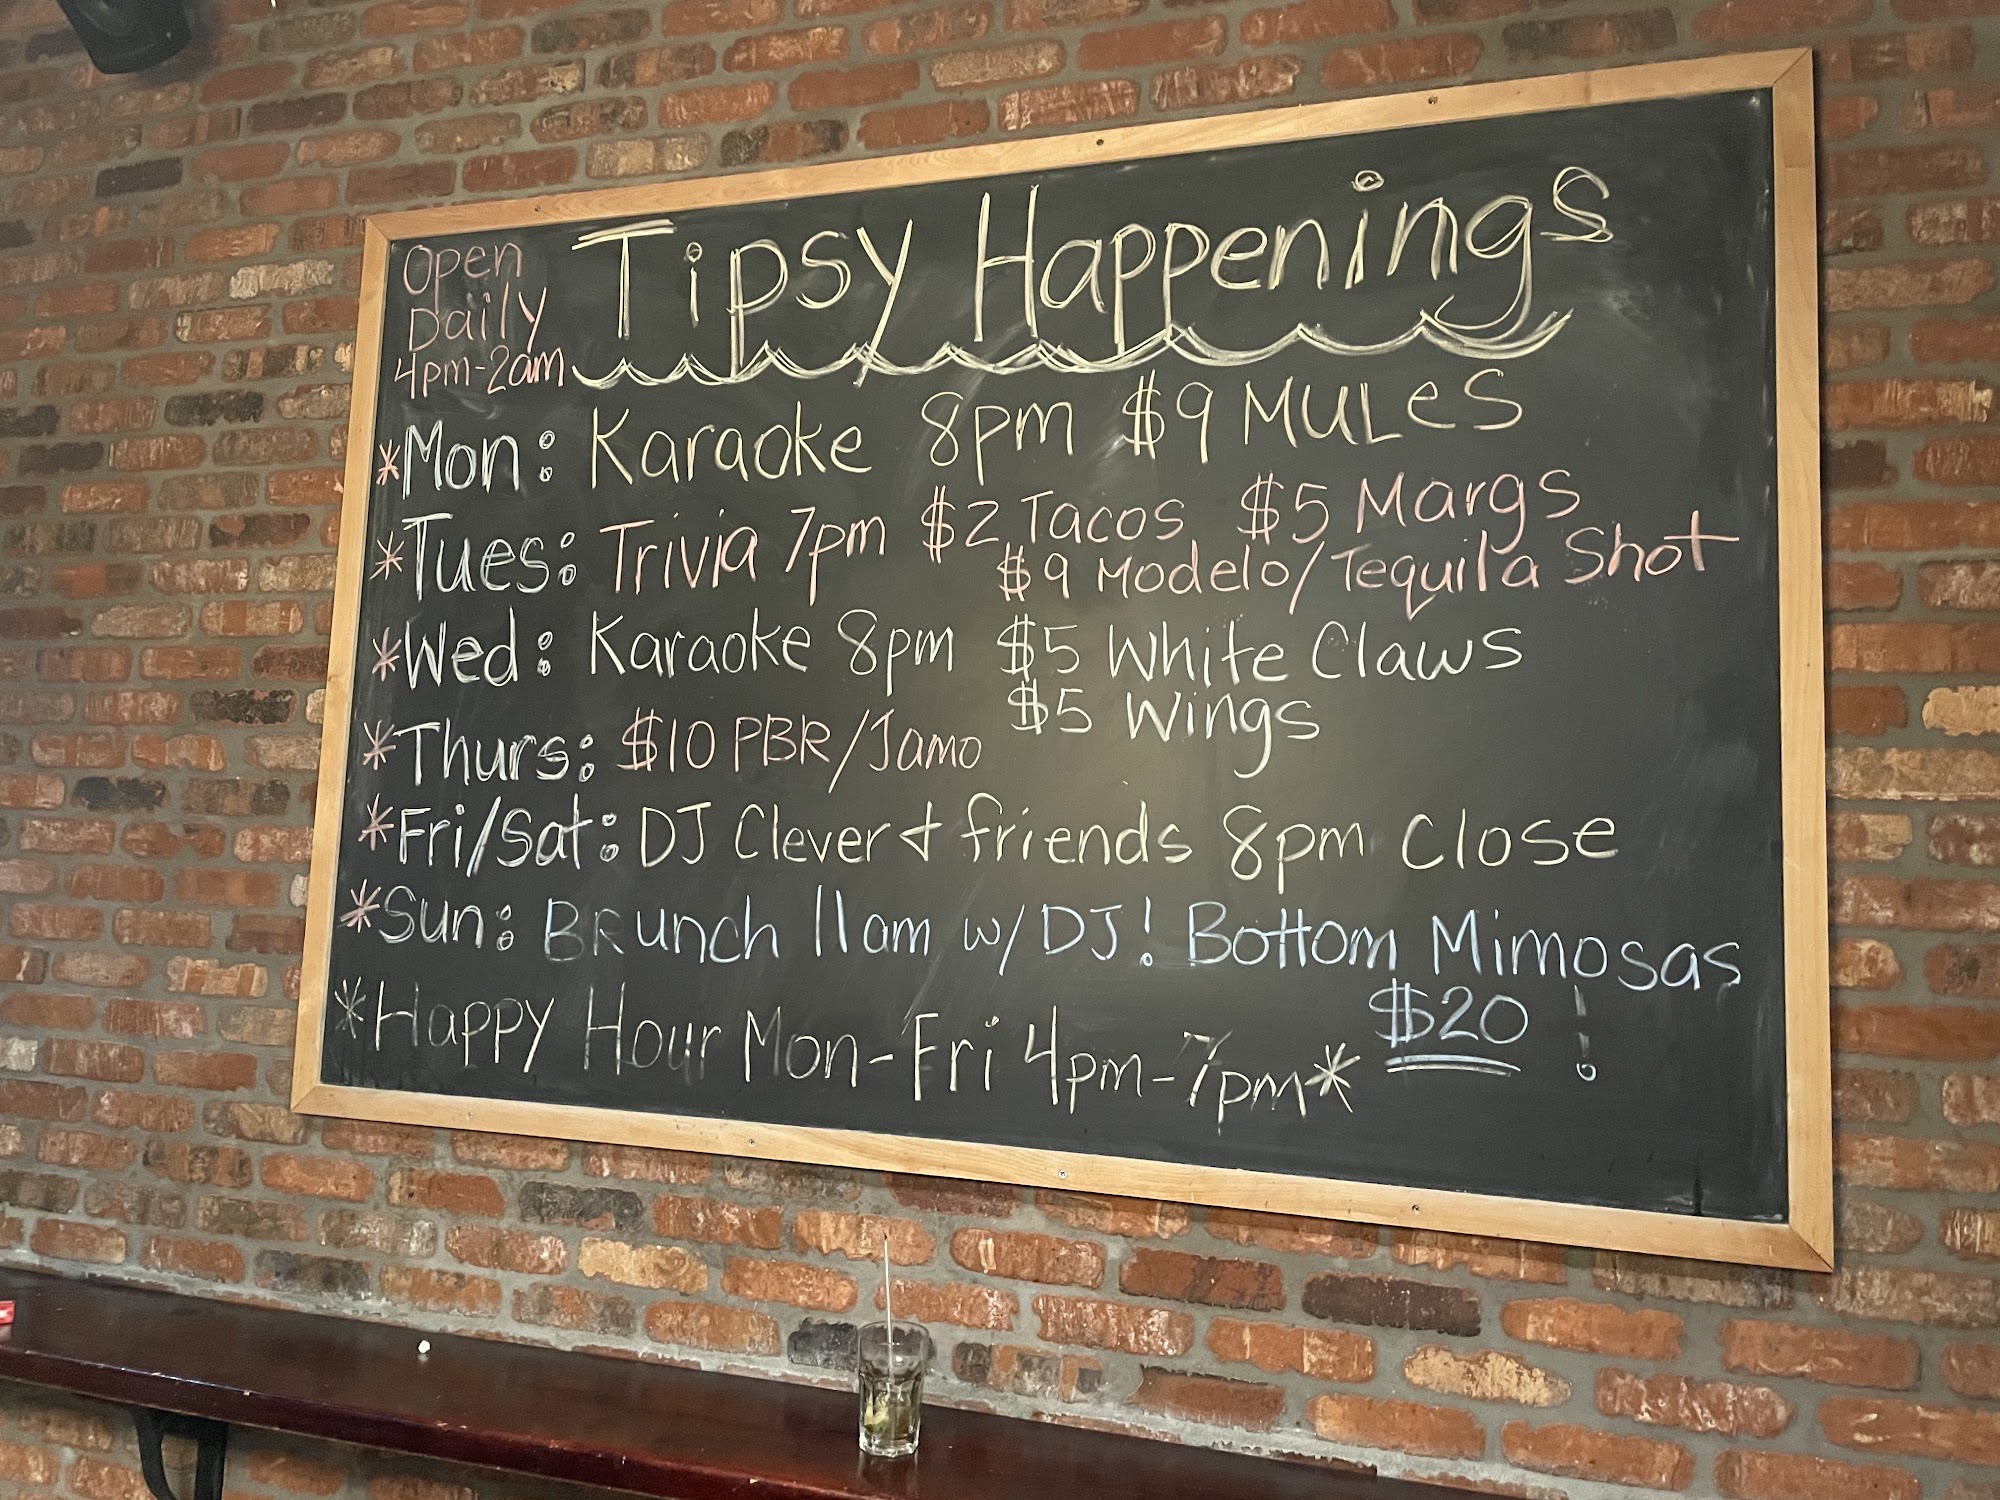 Open
Daily
4pm-2am
Tipsy Happenings
*Mon: Karaoke 8pm $9 MULeS
*Tues: Trivia 7pm $2 Tacos $5 Margs
$9 Modelo/Tequila Shot
*Wed: Karaoke 8pm $5 White Claws
$5 Wings
*Thurs: $10 PBR/Jamo
*Fri/Sat: DJ Clever + friends 8pm Close
*Sun: BRunch 11am w/DJ! Bottom Mimosas
$20 !
*Happy Hour Mon-Fri 4pm-7pm*